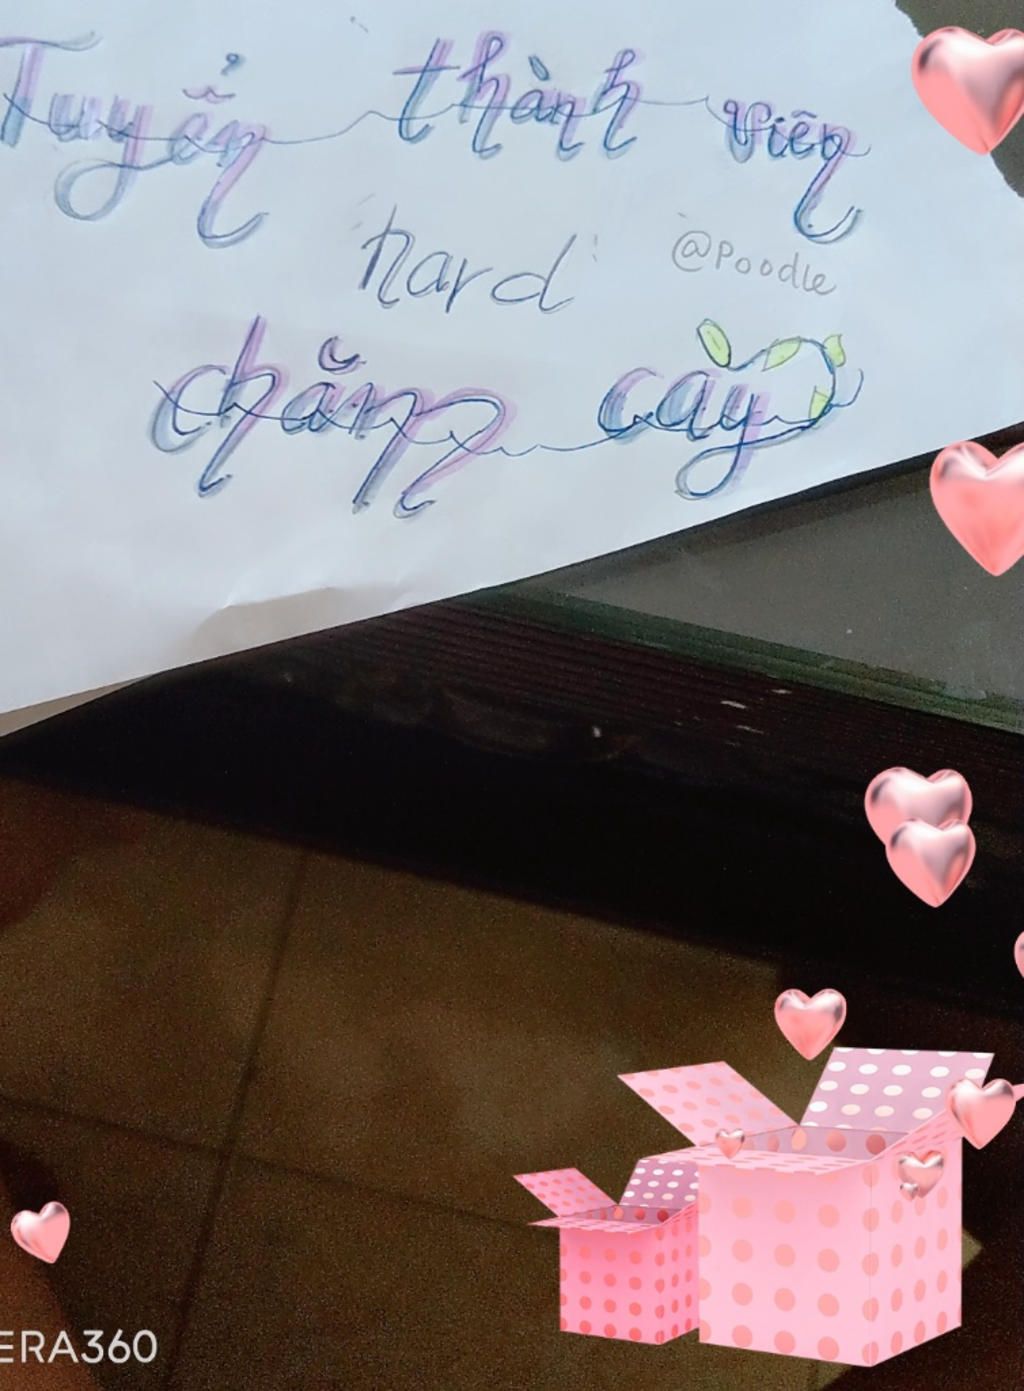 Tuyển thành viên
hard
@Poodle
chăm cày
ERA360